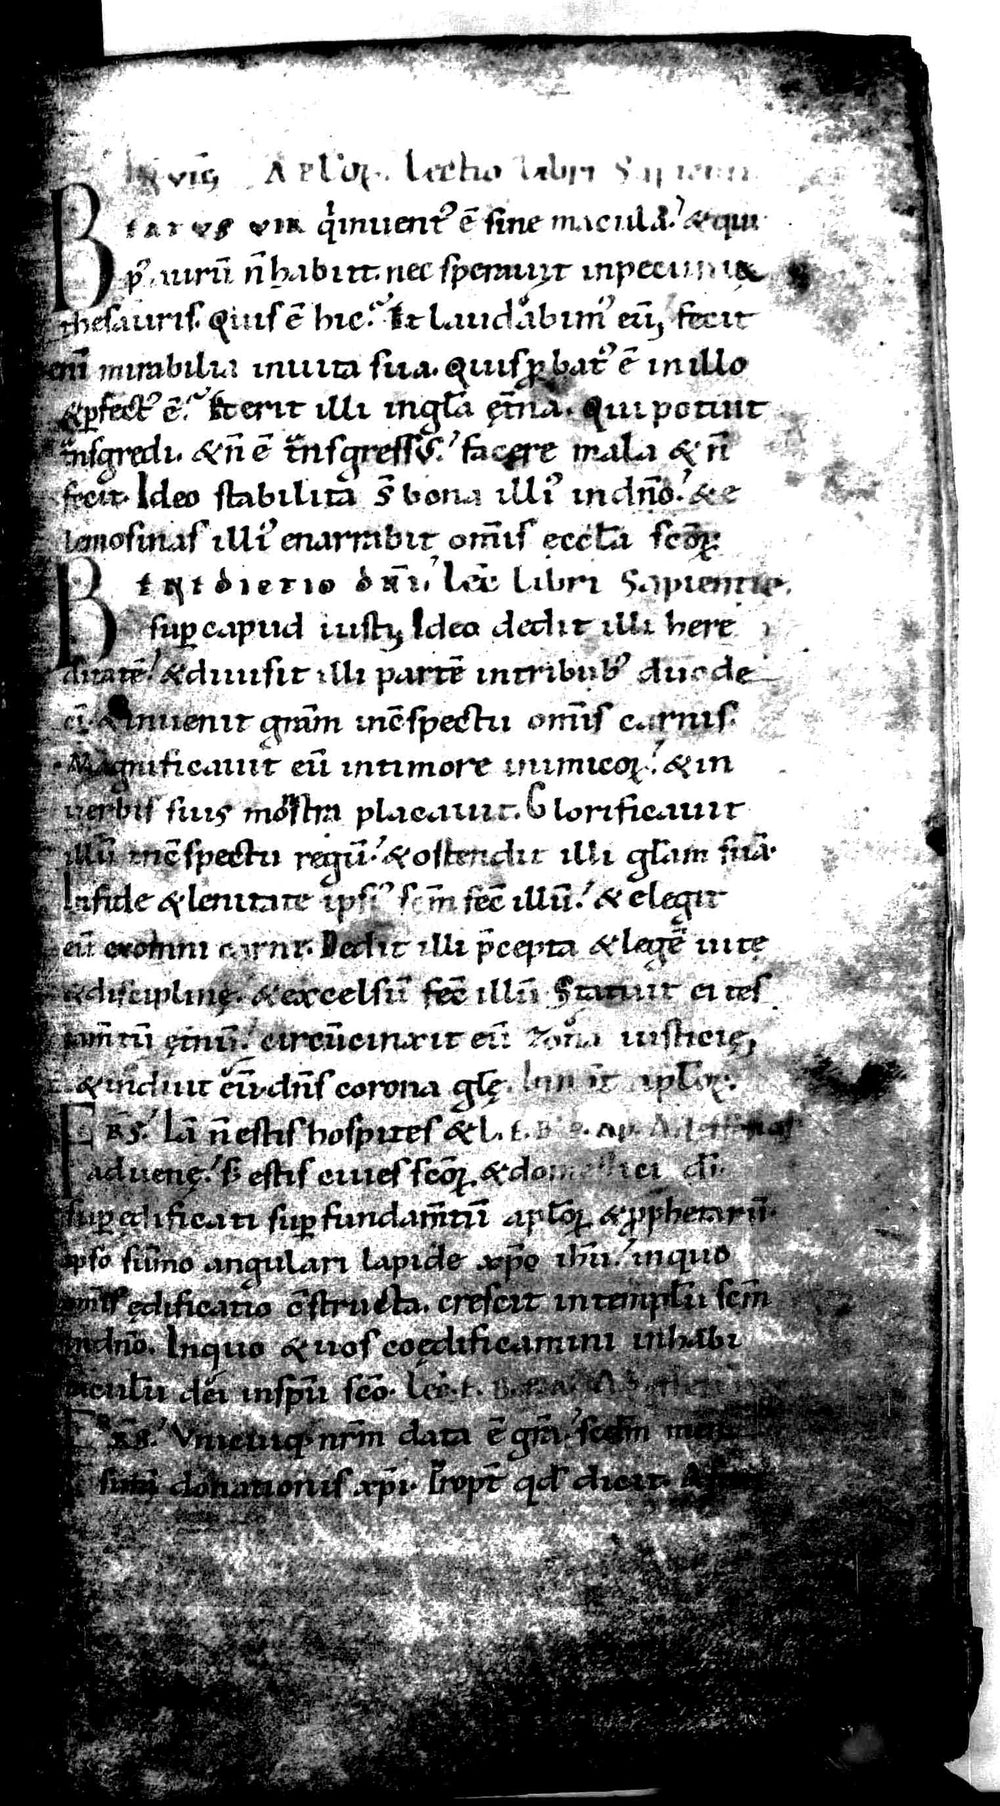 In viḡ Apl'oꝝ. Lectio libri Sapient
Beatus vir qͥ inuentꝰ ē sine macula.ʼ & qui
pꝰ aurū n̄ habiit. nec sperauit in pecunię
thesauris. Quis ē hic.ʼ Et laudabimꝰ eū, fecit
eni᷎ mirabilia in uita sua. Quis ꝓbatꝰ ē in illo
& ꝑfectꝰ ē.ʼ & erit illi in gl̄a ęt̄na. Qui potuit
tͣnsgredi. & n̄ ē tͣnsgressꝰ.ʼ facere mala & n̄
fecit. Ideo stabilita s̄ bona illiꝰ in dn̄o.ʼ & e
lemosinas illiꝰ enarrabit om̄is eccl̄a sc̄oꝝ.
Benedictio dn̄i.ʼ Lēc libri Sapientie.
suꝑ capud iusti, Ideo dedit illi here
ditatē.ʼ & diuisit illi partē in tribubꝰ duode
cī. & inuenit gr̄am in c̄spectu om̄is carnis.
Magnificauit eū in timore inimicoꝝ.ʼ & in
uerbis suis mōstra placauit. Glorificauit
illū in c̄spectu regū.ʼ & ostendit illi gl̄am suā.
In fide & lenitate ipsiꝰ sc̄m fec̄ illū.ʼ & elegit
eū ex omni carne. Dedit illi p̄cepta & legē uitę
& disciplinę.ʼ & excelsū fec̄ illū. Statuit ei tes
tam̄tū ęt̄nū.ʼ circūcinxit eū zona iusticię,
& induit eū dn̄s corona gl̄ę. In n̄t apl̄oꝝ.
Frs̄.ʼ Iā n̄ estis hospites & L. E. B. P. Ap. A
aduenę.ʼ s; estis ciues sc̄oꝝ & domestici dī.
suꝑędificati suꝑ fundam̄tū apl̄oꝝ & ꝓphetarū.
ipso sūmo angulari lapide xp̄o ih̄u.ʼ in quo
om̄is ędificatio c̄structa. crescit in templū sc̄m
in dn̄o. In quo & uos coędificamini in habi
taculū dei in sp̄u sc̄o. Lēc. E. B. P. A. A
Frs̄.ʼ Vnicuiqꝫ nr̄m data ē gr̄a.ʼ scd̄m men
surā donationis xp̄i. Propt̄ qd̄ dicit. A